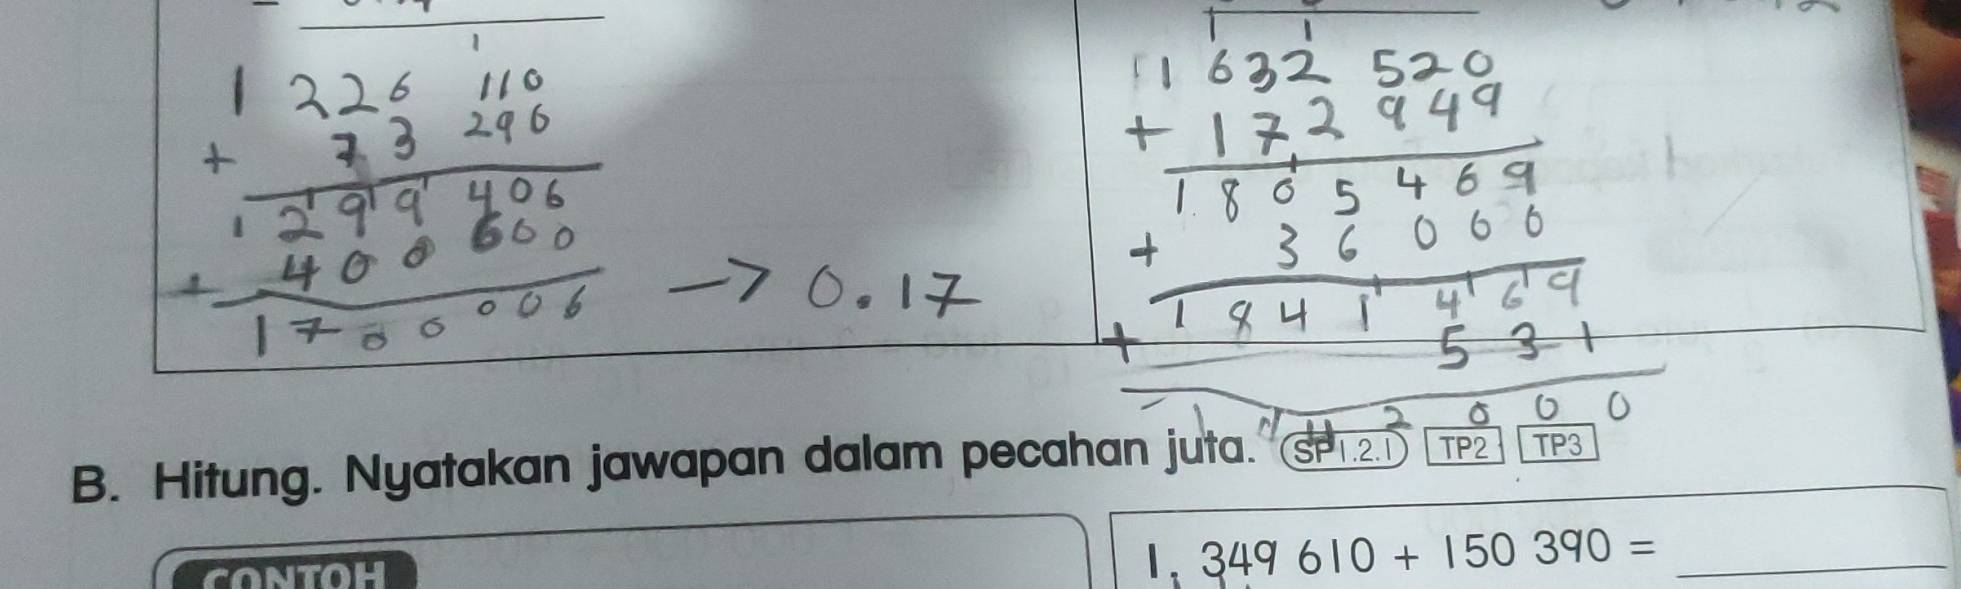 1
1 226 110
+ 73 296
1 299 406
+ 400 600
1700 006 → 0.17
1 1
1 632 520
+ 172 949
1805 469
+ 36 000
1841 469
+ 531
2 000
B. Hitung. Nyatakan jawapan dalam pecahan juta. SP1.2.1 TP2 TP3
CONTOH
1. 349 610 + 150 390 =